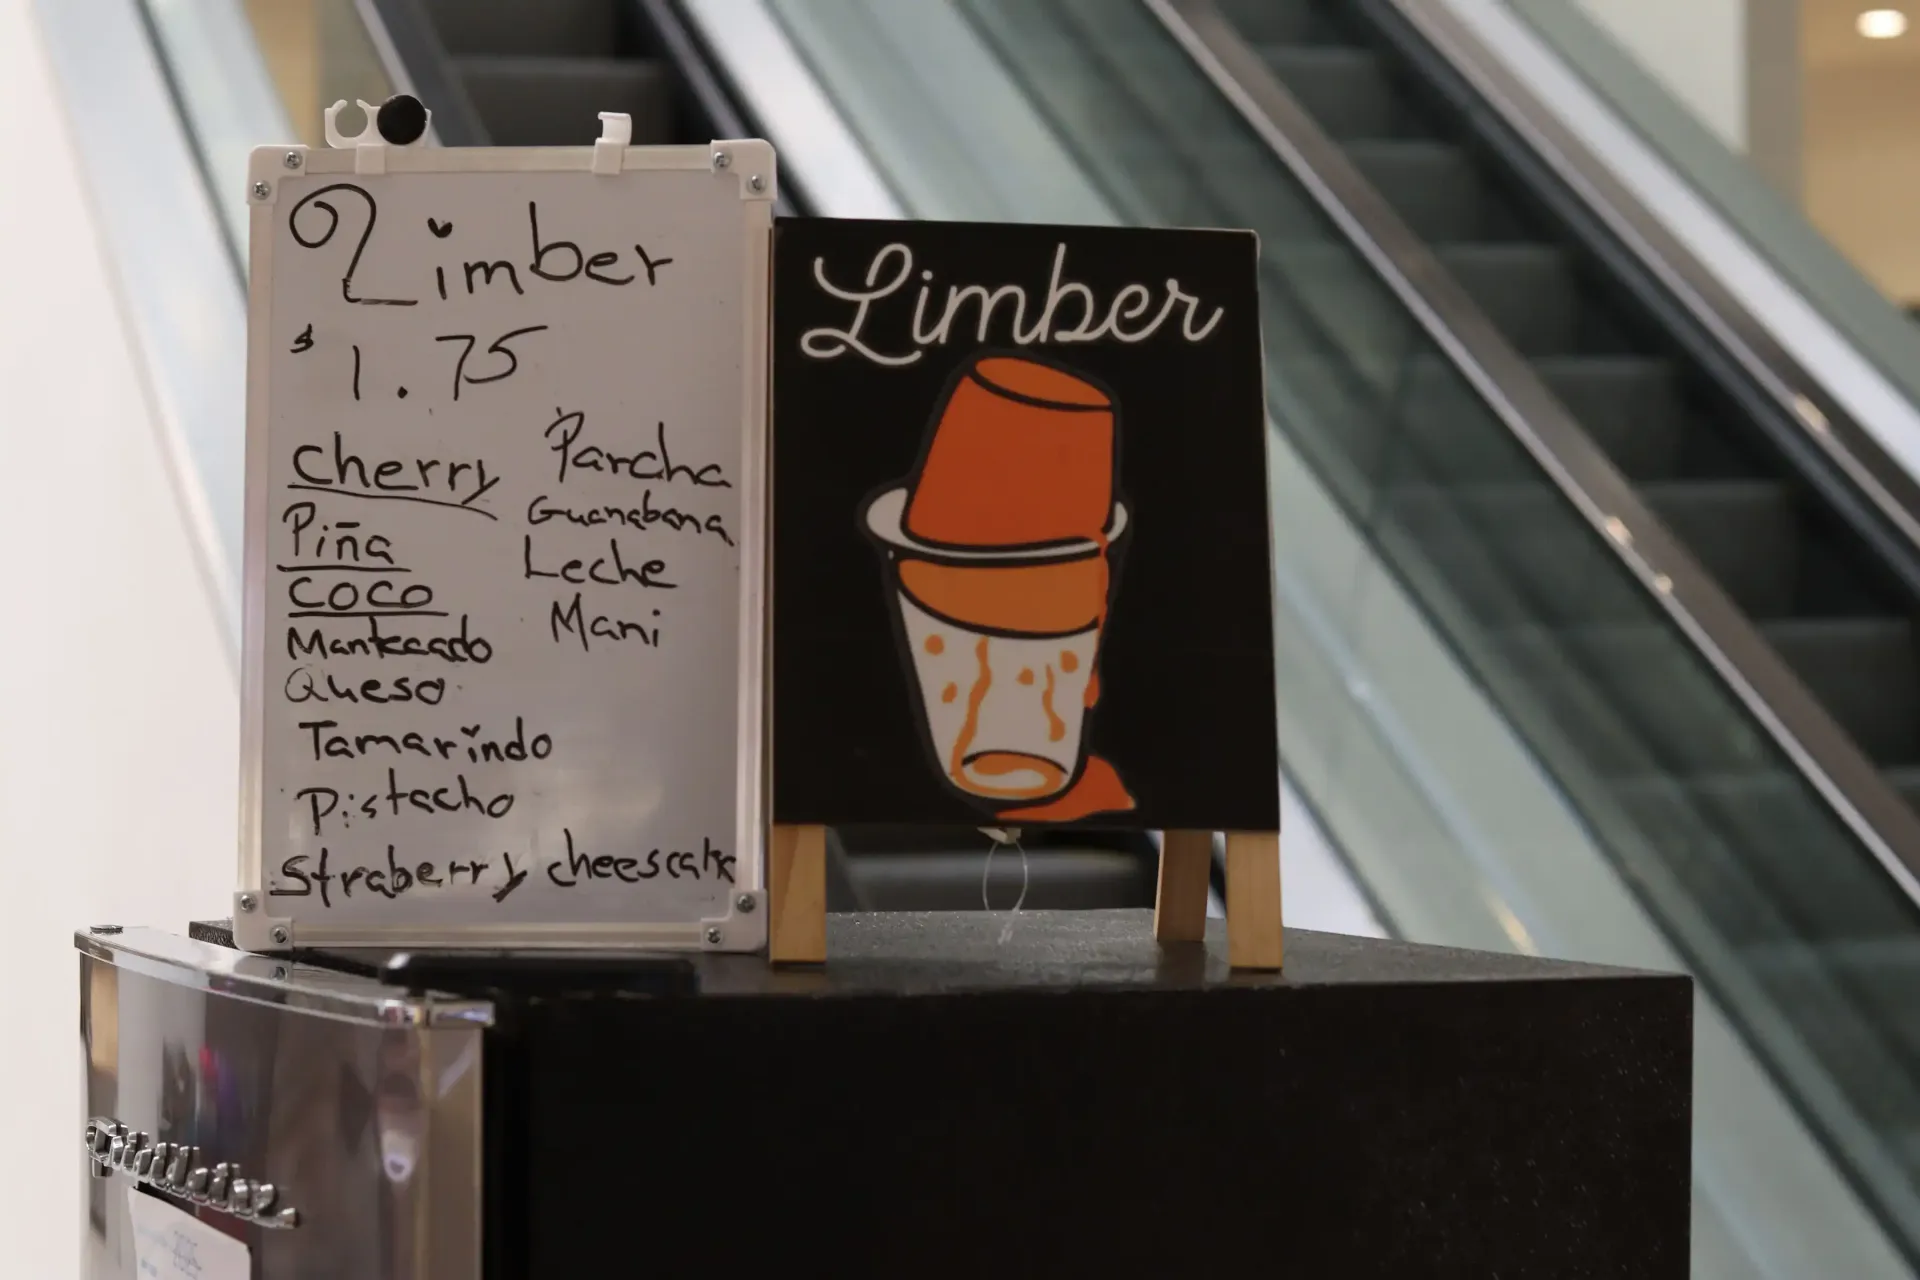 Limber
$1.75
Cherry
Piña
Coco
Mantecado
Queso
Tamarindo
Pistacho
Straberry cheesecake
Parcha
Guanabana
Leche
Mani
Limber